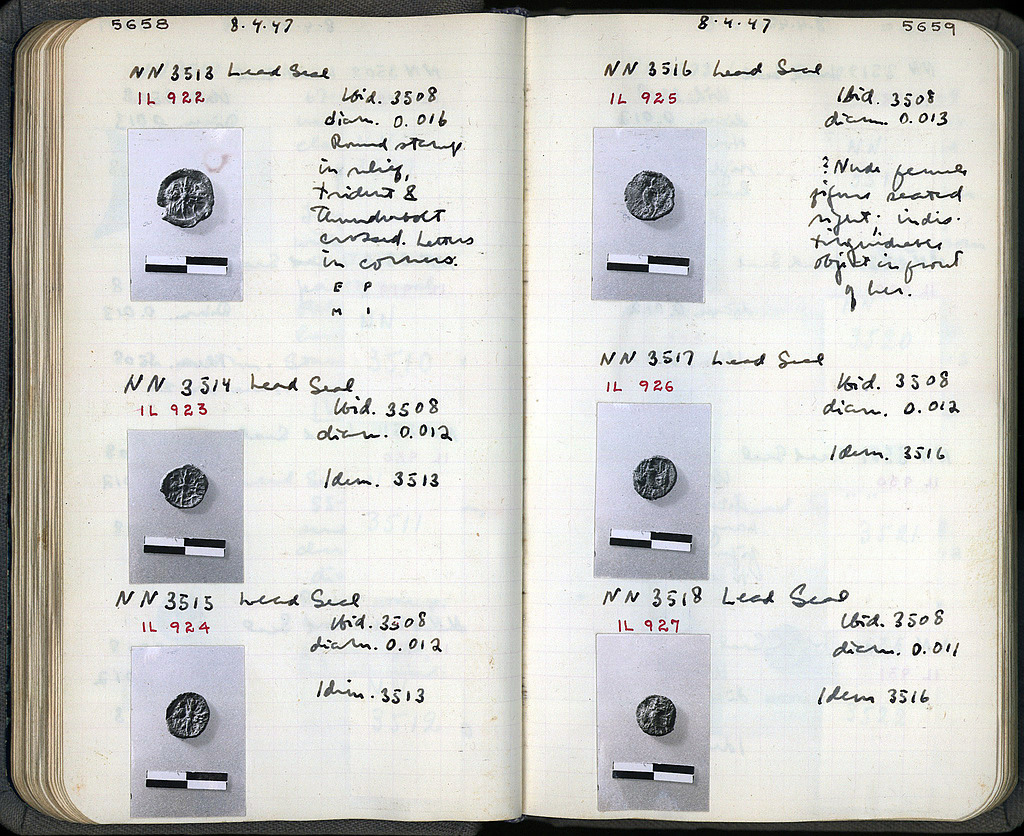 5658
8·4·47
NN 3513 Lead Seal
IL 922
Ibid. 3508
diam. 0.016
Round stamp
in relief,
trident &
thunderbolt
crossed. Letters
in corners.
E P
M I
NN 3514 Lead Seal
IL 923
Ibid. 3508
diam. 0.012
Idem. 3513
NN 3515 Lead Seal
IL 924
Ibid. 3508
diam. 0.012
Idem. 3513
8·4·47
5659
NN 3516 Lead Seal
IL 925
Ibid. 3508
diam. 0.013
? Nude female
figure seated
right; indis-
tinguishable
object in front
of her.
NN 3517 Lead Seal
IL 926
Ibid. 3508
diam. 0.012
Idem. 3516
NN 3518 Lead Seal
IL 927
Ibid. 3508
diam. 0.011
Idem 3516